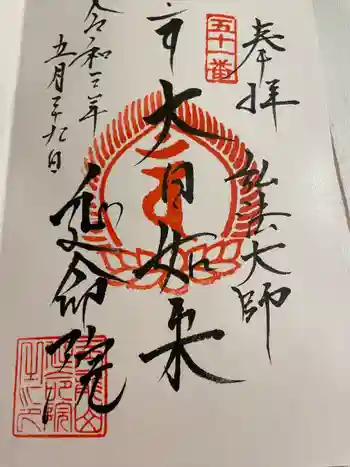 奉拝
弘法大師
五十一番
大日如来
延命院
令和三年
五月二十九日